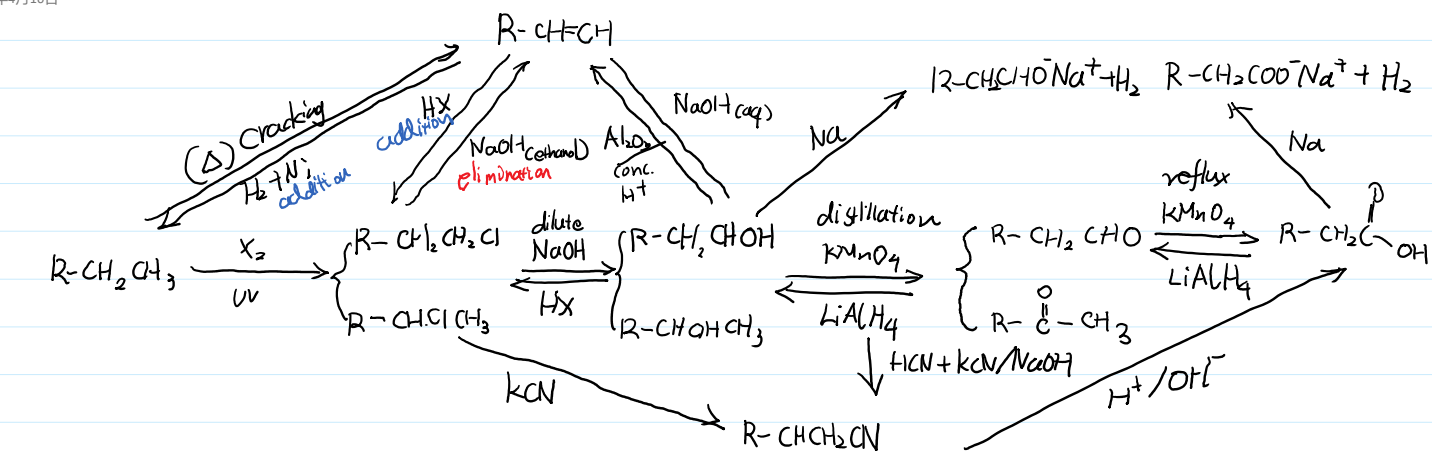 R-CH=CH
R-CH₂CHO⁻Na⁺+H₂
R-CH₂COO⁻Na⁺+H₂
(Δ) Cracking
H₂+Ni
addition
HX
addition
NaOH(ethanol)
elimination
Al₂O₃
conc.
H⁺
NaOH(aq)
Na
Na
R-CH₂CH₃
X₂
UV
R-CH₂CH₂Cl
R-CHClCH₃
dilute
NaOH
HX
R-CH₂CHOH
R-CHOHCH₃
distillation
KMnO₄
LiAlH₄
R-CH₂CHO
O
R-C-CH₃
reflux
KMnO₄
LiAlH₄
O
R-CH₂C
OH
KCN
HCN+KCN/NaOH
R-CHCH₂CN
H⁺/OH⁻